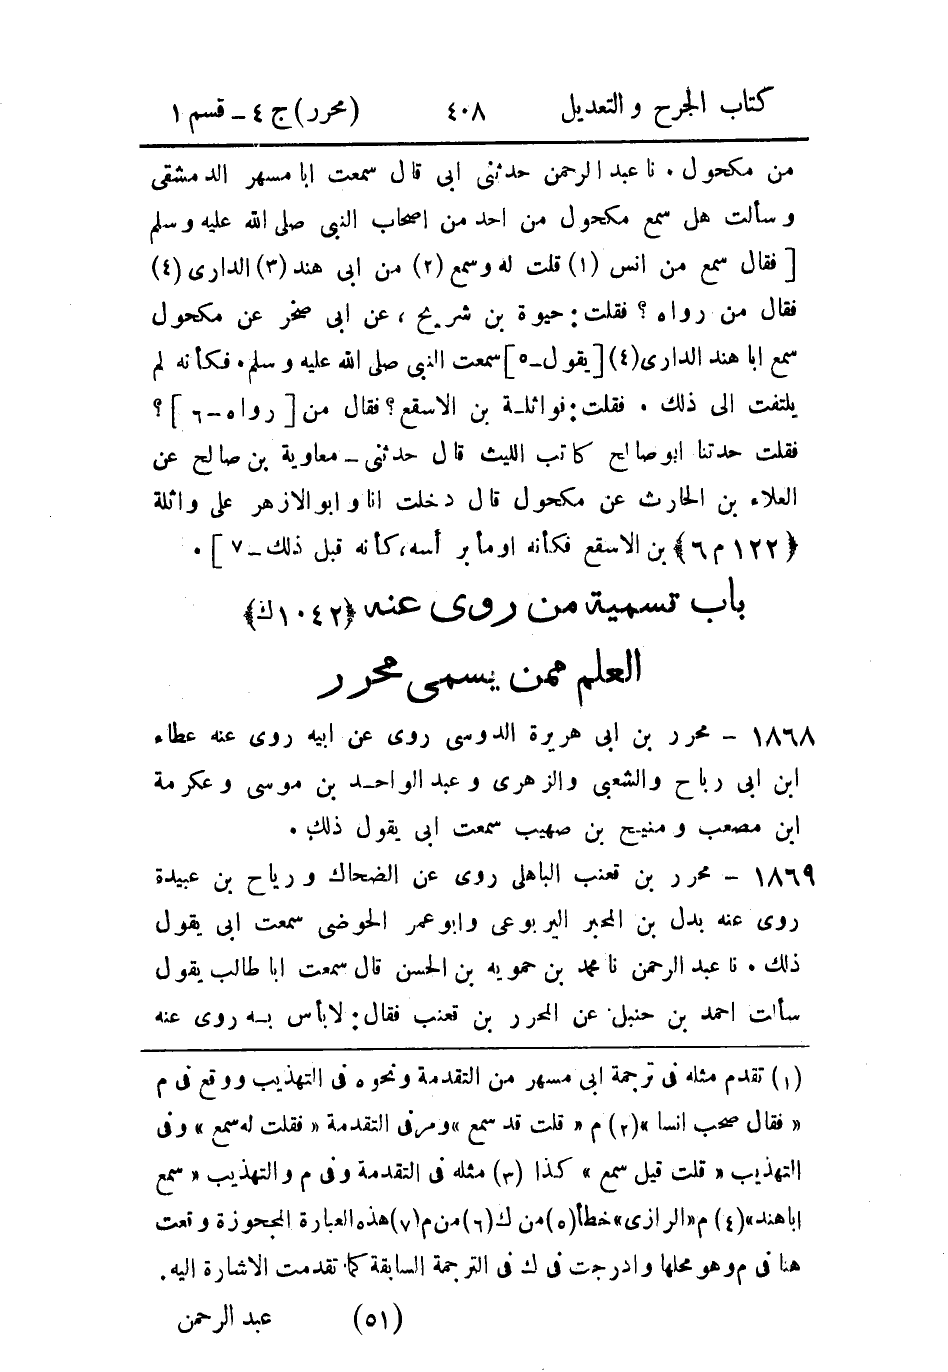 كتاب الجرح والتعديل ٤٠٨ (محرر) ج ٤ - قسم ١
من مكحول . نا عبد الرحمن حدثنى ابى قال سمعت ابا مسهر الدمشقى
وسألت هل سمع مكحول من احد من اصحاب النبى صلى الله عليه وسلم
[ فقال سمع من انس (١) قلت له وسمع (٢) من ابى هند (٣) الدارى (٤)
فقال من رواه ؟ فقلت: حيوة بن شريح ، عن ابى صخر عن مكحول
سمع ابا هند الدارى (٤) [ يقول -٥ ] سمعت النبى صلى الله عليه وسلم . فكأنه لم
يلتفت الى ذلك . فقلت: فواثلة بن الاسقع؟ فقال من [ رواه -٦ ] ؟
فقلت حدثنا ابو صالح كاتب الليث قال حدثنى - معاوية بن صالح عن
العلاء بن الحارث عن مكحول قال دخلت انا و ابو الازهر على واثلة
﴿١٢٢ م ٦﴾ بن الاسقع فكأنه اومأ برأسه، كأنه قبل ذلك -٧ ] .
باب تسمية من روى عنه ﴿١٠٤٢ ك﴾
العلم ممن يسمى محرر
١٨٦٨ - محرر بن ابى هريرة الدوسى روى عن ابيه روى عنه عطاء
ابن ابى رباح والشعبى والزهرى وعبد الواحد بن موسى وعكرمة
ابن مصعب ومنيح بن صهيب سمعت ابى يقول ذلك .
١٨٦٩ - محرر بن قعنب الباهلى روى عن الضحاك ورياح بن عبيدة
روى عنه بدل بن المحبر اليربوعى وابو عمر الحوضى سمعت ابى يقول
ذلك . نا عبد الرحمن نا محمد بن حمويه بن الحسن قال سمعت ابا طالب يقول
سألت احمد بن حنبل عن المحرر بن قعنب فقال: لابأس به روى عنه
(١) تقدم مثله فى ترجمة ابى مسهر من التقدمة ونحوه فى التهذيب ووقع فى م
« فقال صحب انسا » (٢) م « قلت قد سمع » ومر فى التقدمة « فقلت له سمع » وفى
التهذيب « قلت قيل سمع » كذا (٣) مثله فى التقدمة وفى م والتهذيب « سمع
اباهند» (٤) م «الرازى» خطأ (٥) من ك (٦) من م (٧) هذه العبارة المحجوزة وقعت
هنا فى م وهو محلها وادرجت فى ك فى الترجمة السابقة كما تقدمت الاشارة اليه .
(٥١) عبد الرحمن